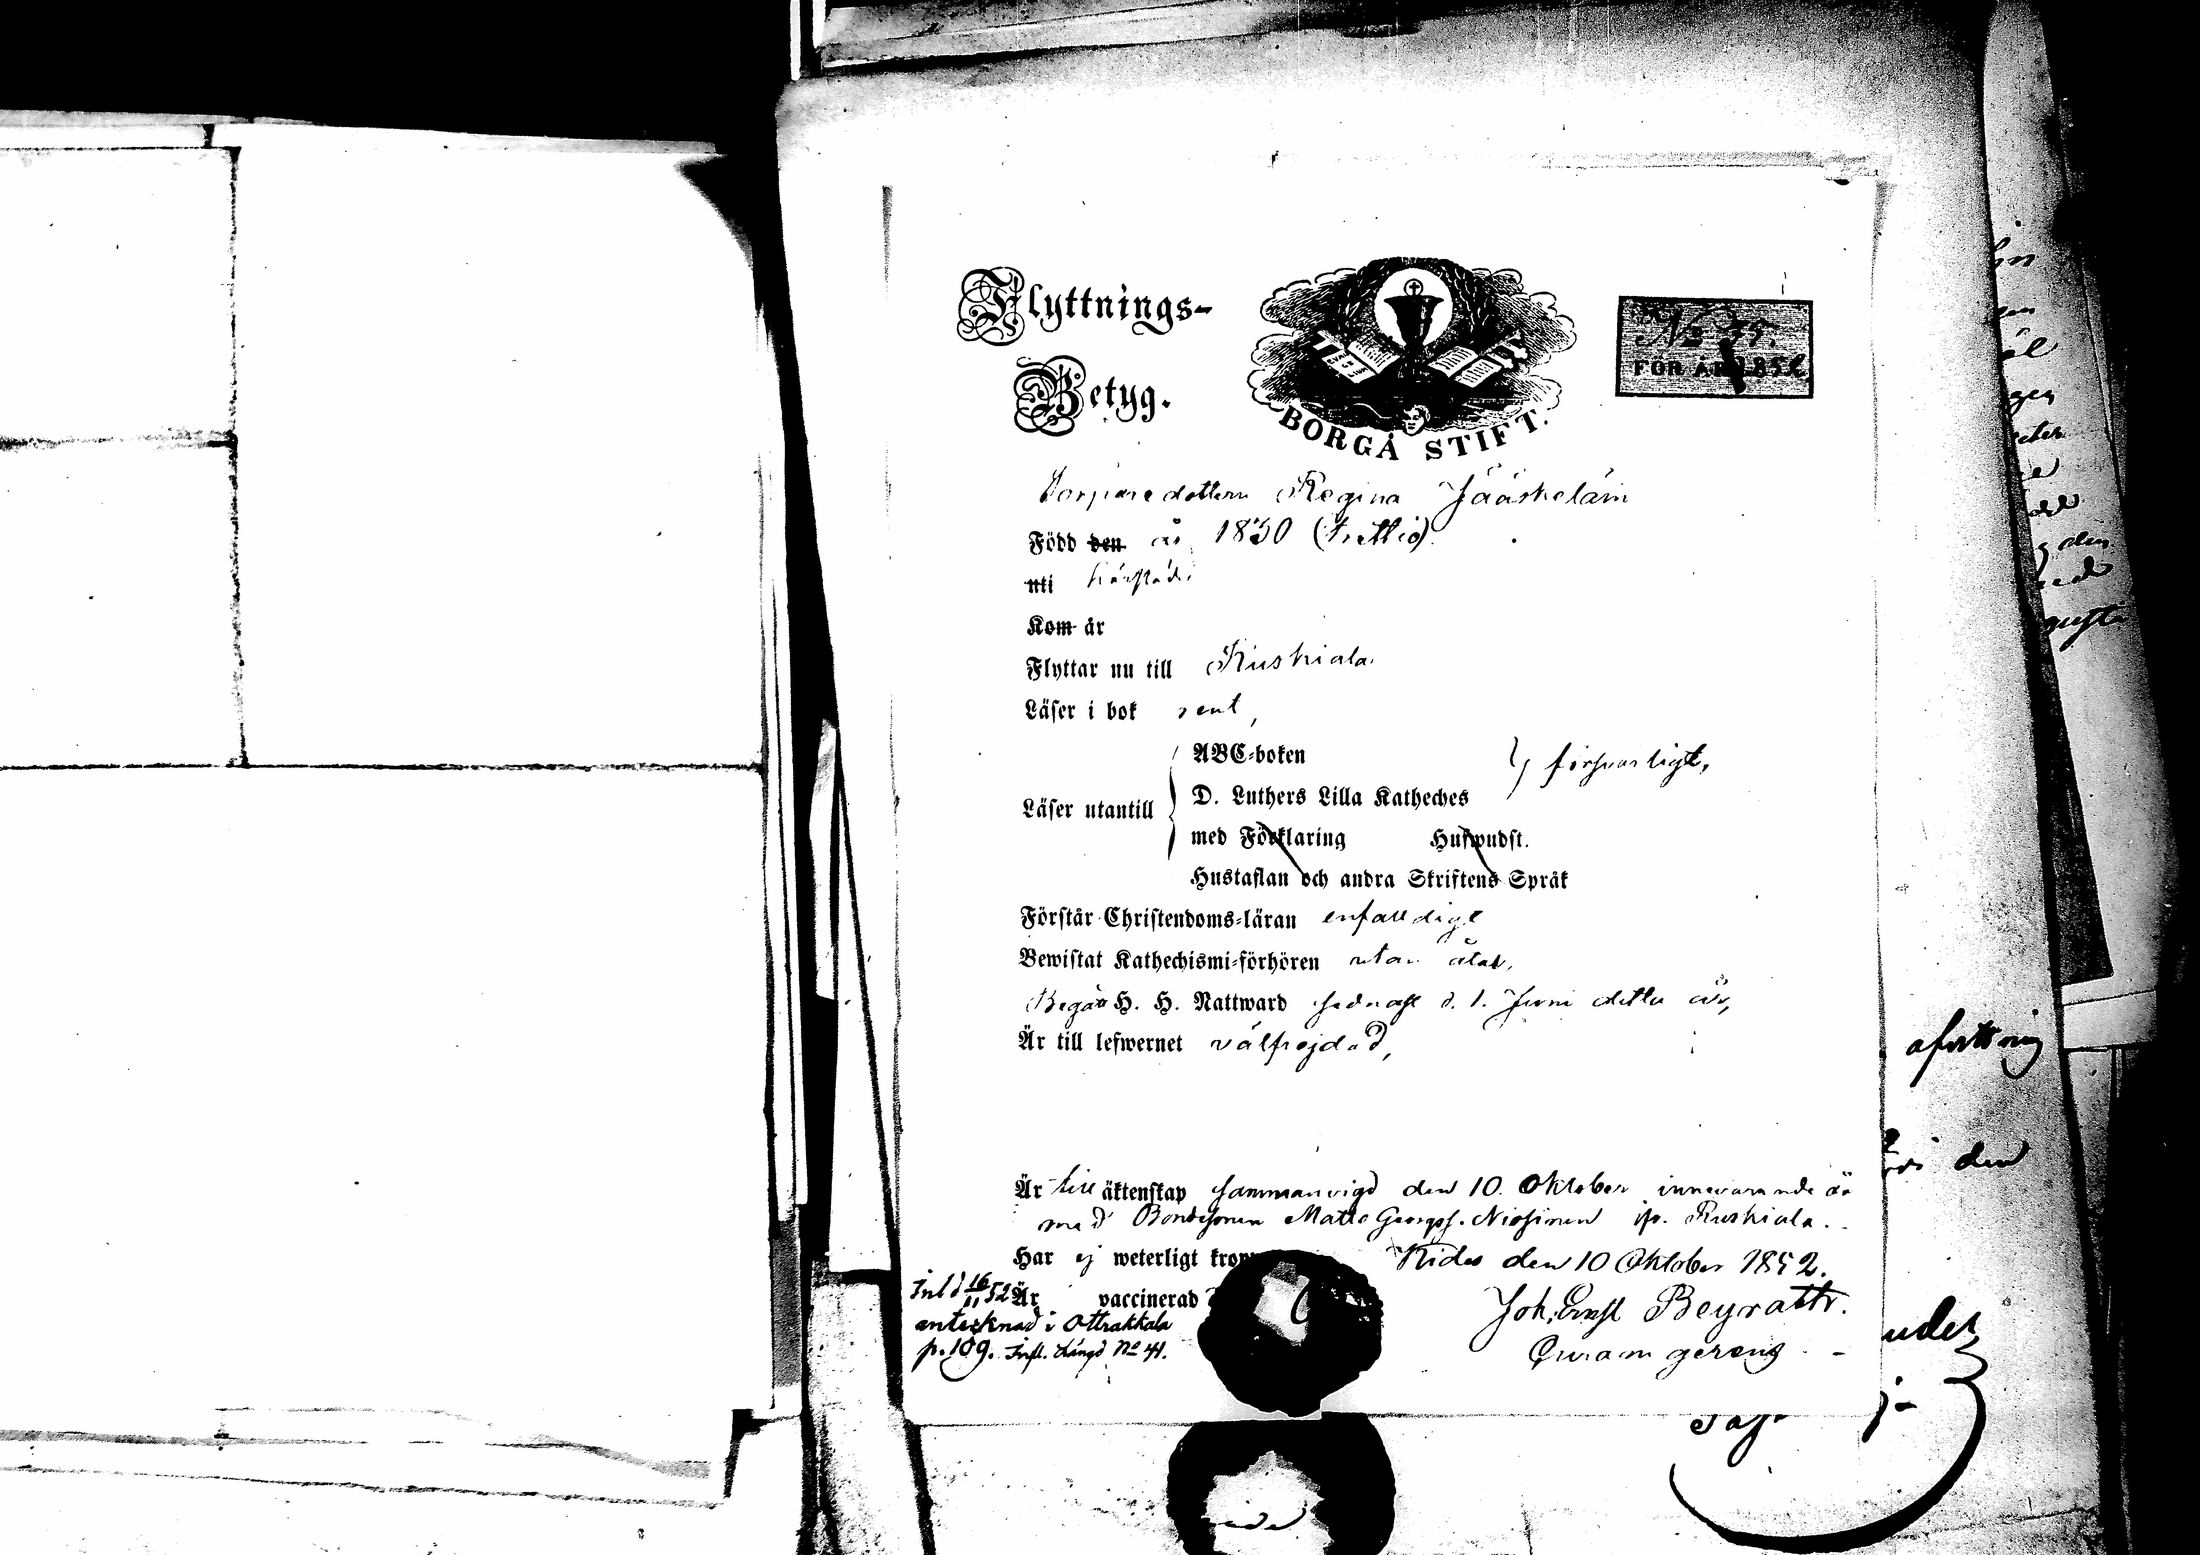 Flyttnings-
Betyg.
BORGÅ STIFT.
No 35.
FÖR ÅR 1852
Torparedottern Regina Jääskeläin
Född den år 1830 (trettio).
uti härstädes
Kom år
Flyttar nu till Ruskiala.
Läser i bok rent,
ABC-boken
försvarligt,
Läser utantill
D. Luthers Lilla Katheches
med Förklaring Hufwudst.
Hustaflan och andra Skriftens Språk
Förstår Christendoms-läran enfaldigt
Bewistat Kathechismi-förhören utan åtal,
Begått H. H. Nattward sednast d. 1. Juni detta år,
Är till lefwernet välfrejdad,
Är till äktenskap sammanvigd den 10. Oktober innevarande år
med Bondesonen Matts Georgss. Niosinen ifr. Ruskiala.
Har ej weterligt
Kides den 10 Oktober 1852.
Inl d 16/11 52
Är vaccinerad
Joh. Ernst Beyrath.
antecknad i Ottrakkala
p. 109. Infl. Längd No 41.
Curam gerens
afvittring
den